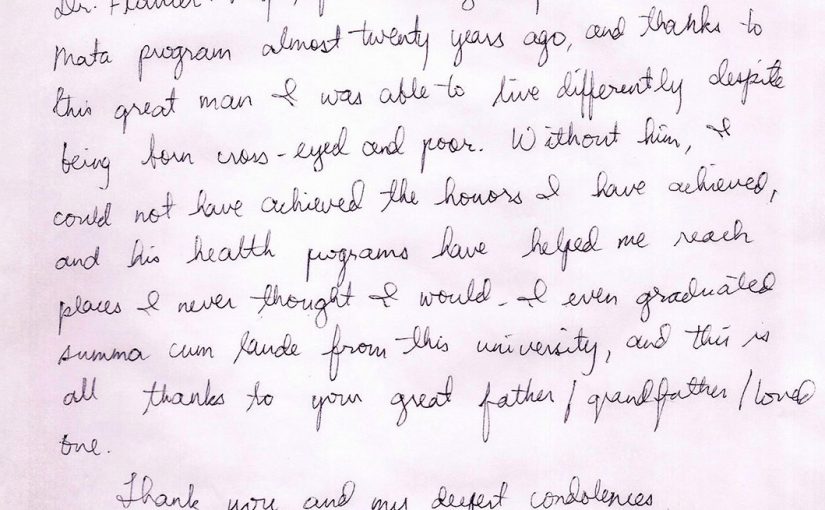 Dr.
Mata program almost twenty years ago, and thanks to
this great man I was able to live differently despite
being born cross-eyed and poor. Without him, I
could not have achieved the honors I have achieved,
and his health programs have helped me reach
places I never thought I would. I even graduated
summa cum laude from this university, and this is
all thanks to your great father/grandfather/loved
one.
Thank you and my deepest condolences